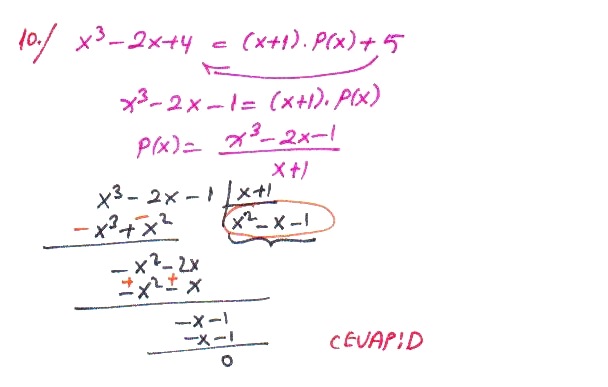 10./ x³ - 2x + 4 = (x+1) . P(x) + 5
x³ - 2x - 1 = (x+1) . P(x)
P(x) = x³ - 2x - 1
x+1
x³ - 2x - 1 | x+1
- x³ + - x² x² - x - 1
- x² - 2x
+ - x² + - x
- x - 1
- x - 1
0
CEVAP: D